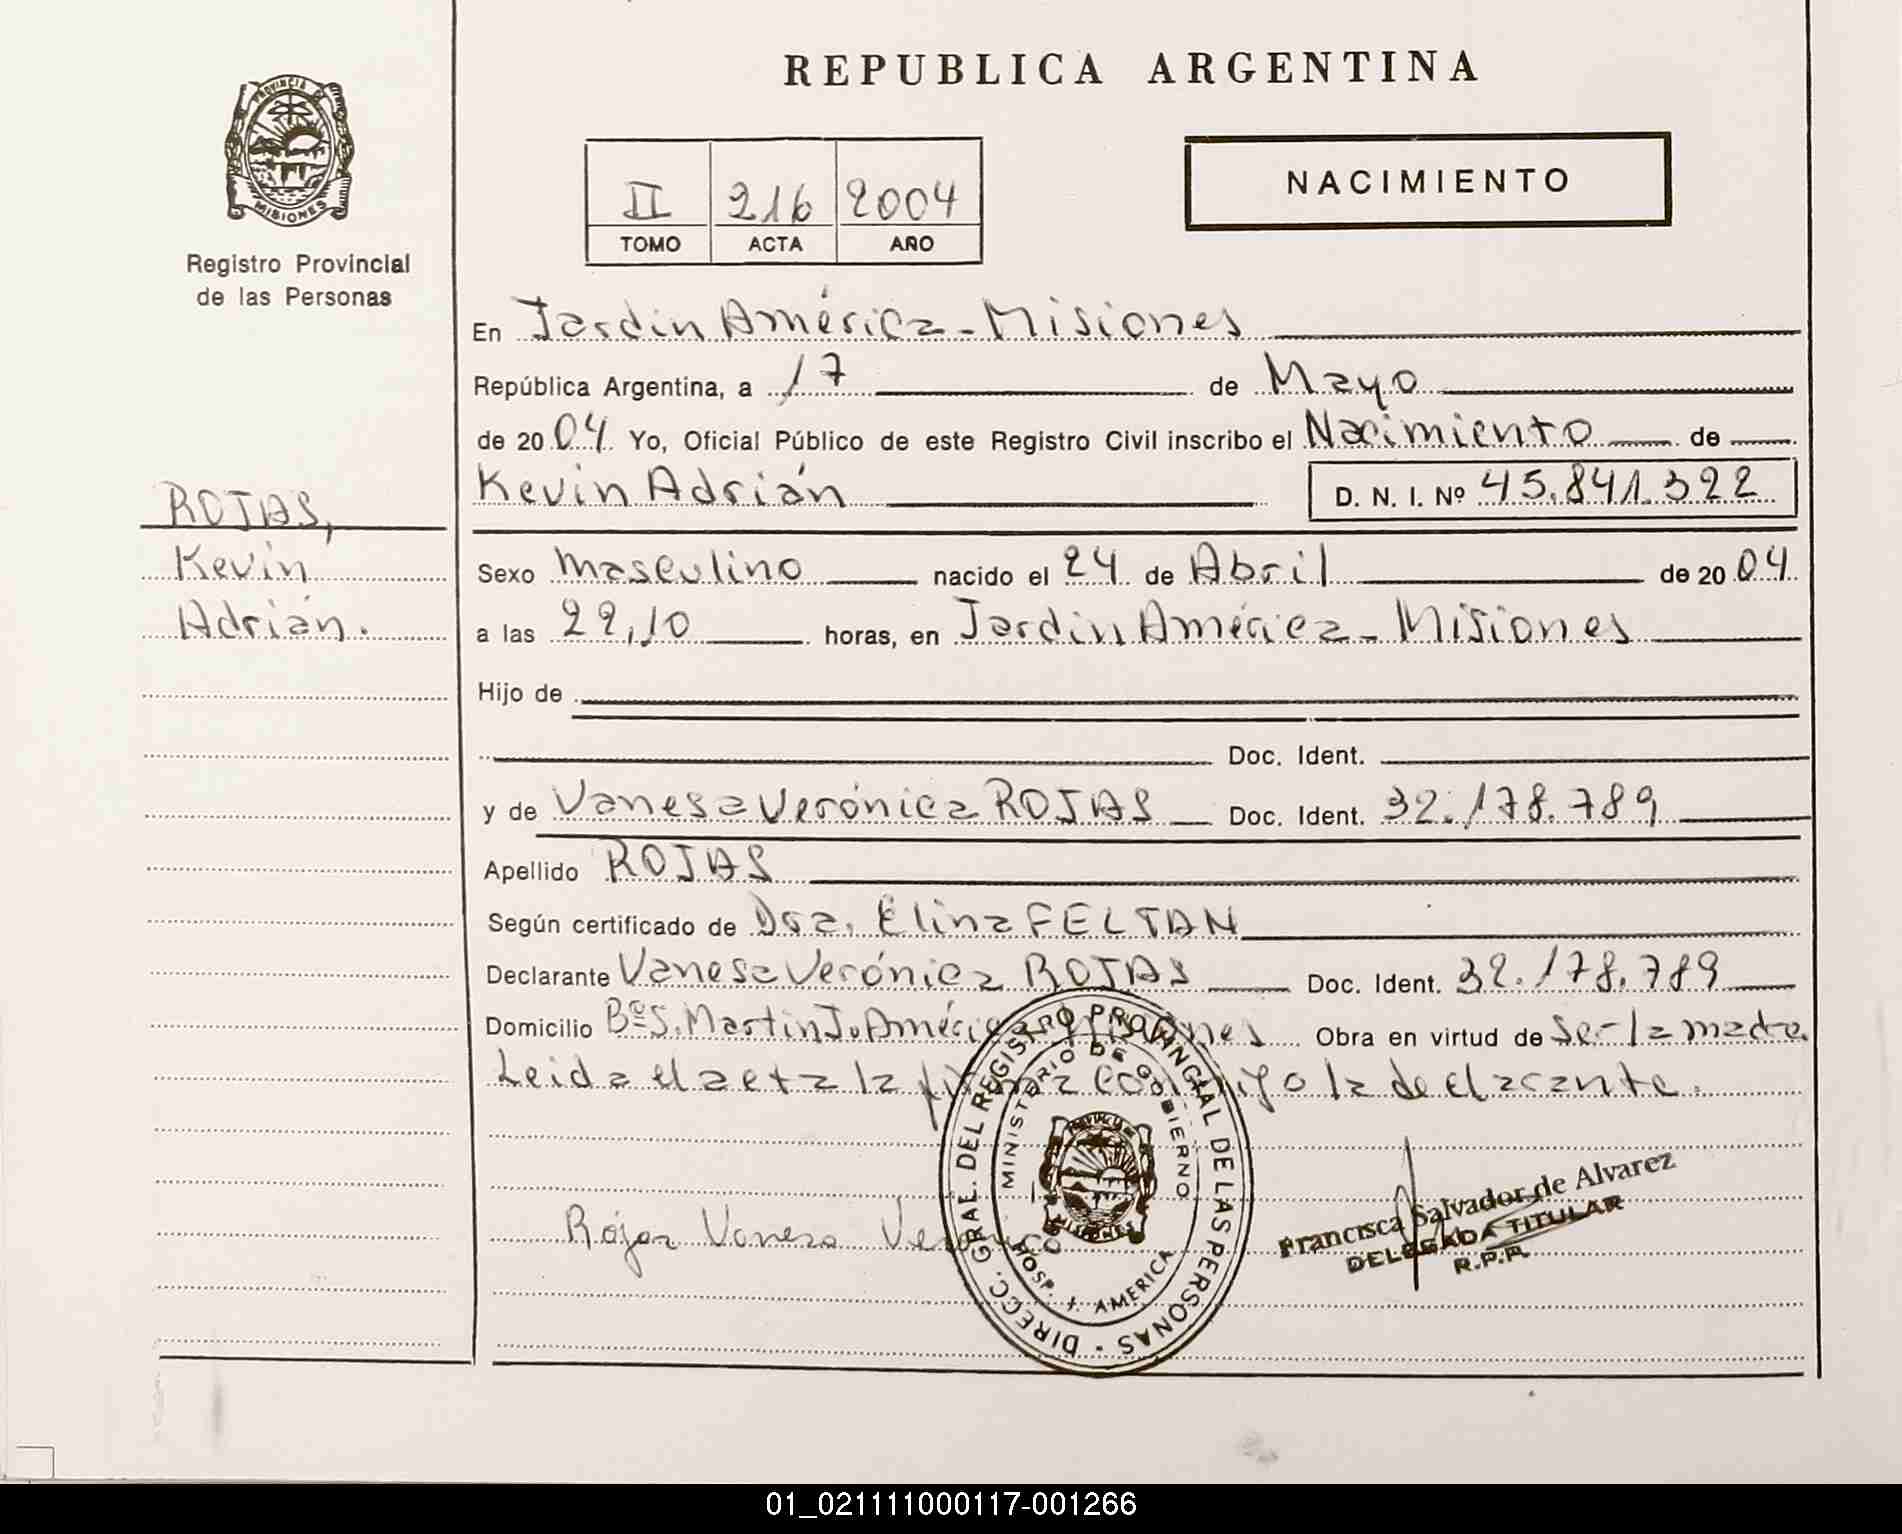 REPUBLICA ARGENTINA
PROVINCIA DE
MISIONES
Registro Provincial
de las Personas
NACIMIENTO
II 216 2004
TOMO ACTA AÑO
ROJAS,
Kevin
Adrián.
En Jardin América - Misiones
República Argentina, a 17 de Mayo
de 2004 Yo, Oficial Público de este Registro Civil inscribo el Nacimiento de
Kevin Adrián D. N. I. Nº 45.841.322
Sexo masculino nacido el 24 de Abril de 2004
a las 22,10 horas, en Jardin América - Misiones
Hijo de
Doc. Ident.
y de Vanesa Verónica ROJAS Doc. Ident. 32.178.789
Apellido ROJAS
Según certificado de Dra. Elina FELTAN
Declarante Vanesa Verónica ROJAS Doc. Ident. 32.178.789
Domicilio Bº S. Martin J. América Misiones Obra en virtud de Ser la madre.
Leida el acta la firma conmigo la declarante.
Rojas Vanesa Veronica
DIRECC. GRAL. DEL REGISTRO PROVINCIAL DE LAS PERSONAS
MINISTERIO DE GOBIERNO
HOSP. J. AMERICA
Francisca Salvador de Alvarez
DELEGADA TITULAR
R.P.P.
01_021111000117-001266